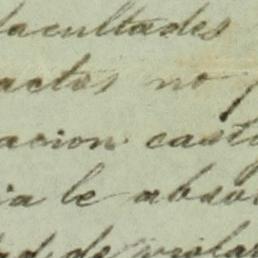 facultades
actos no p
acion casti
ia le abso
ad de viola